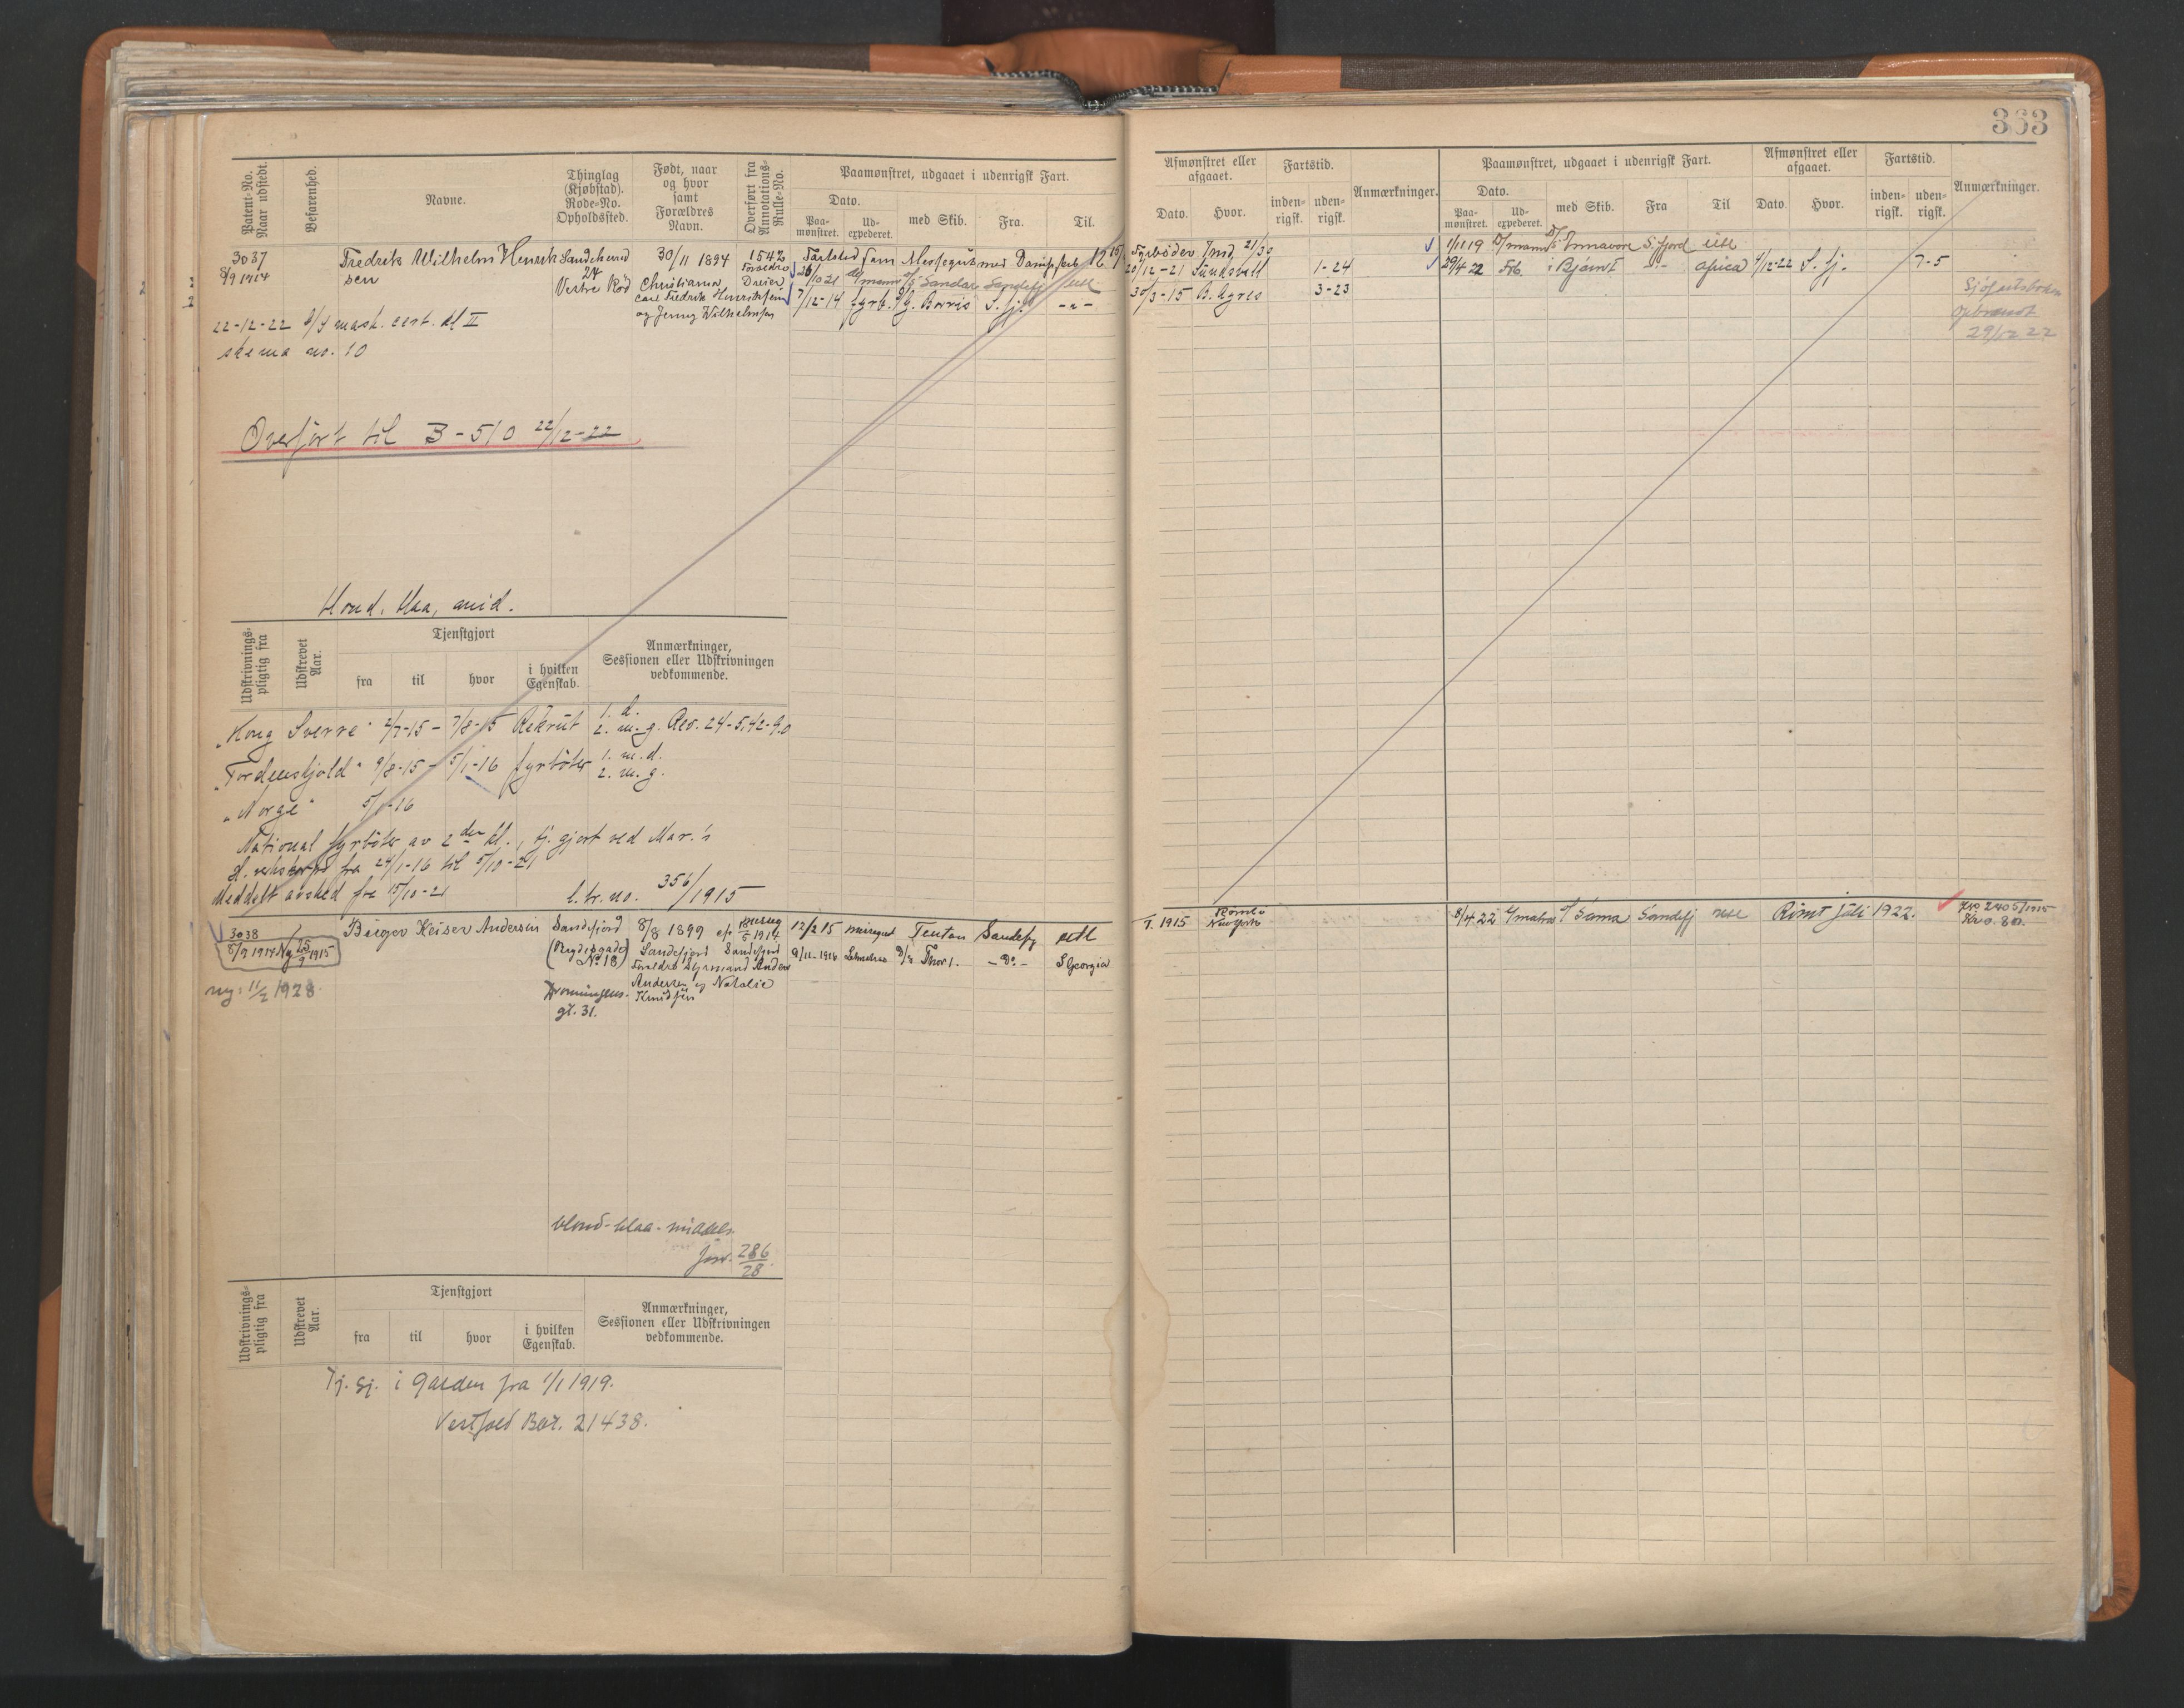 363
Patent-No. Naar udstedt.
Befarenhed.
Navne.
Thinglag (Kjøbstad). Rode-No. Opholdssted.
Født, naar og hvor samt Forældres Navn.
Overført fra Annotations-Rulle-No.
Paamønstret, udgaaet i udenrigsk Fart.
Dato.
Paa-mønstret.
Ud-expederet.
med Skib.
Fra.
Til.
Afmønstret eller afgaaet.
Dato.
Hvor.
Fartstid.
inden-rigsk.
uden-rigsk.
Anmærkninger.
Paamønstret, udgaaet i udenrigsk Fart.
Dato.
Paa-mønstret.
Ud-expederet.
med Skib.
Fra
Til
Afmønstret eller afgaaet.
Dato.
Hvor.
Fartstid.
inden-rigsk.
uden-rigsk.
Anmærkninger.
3037
8/9 1914
Fredrik Wilhelm Henrik
sen
Sandeherred
24
Vestre Rød
30/11 1894
Christiania
Carl Fredrik Henriksen
og Jenny Wilhelmsen
1542
Fartsted som Messegut med Dampskib
Sandar Sandefj utl
7/12-14 fyrb. Boris S.fj. -"-
Fyrbøder
20/12-21 Sundsvall 1-24
30/3-15 B. Ayres 3-23
1/11 19 S.fjord utl
29/4 22 Fyb. Bjørn I -"- Africa 4/12-22 S. fj. 7-5
Sjøfartsboken
opbrændt
29/12 22
22-12-22 mask. cert. kl II
skema no. 10
Overført til 3-510 22/12-22
blond, blaa, mid.
Udskrivnings-pligtig fra
Udskrevet Aar.
Tjenstgjort
fra
til
hvor
i hvilken Egenskab.
Anmærkninger, Sessionen eller Udskrivningen vedkommende.
"Kong Sverre" 2/7-15 - 7/8-15 Rekrut 1. d. 2. m.g. Res. 24-5,42-9.0
"Tordenskjold" 9/8-15 - 5/1-16 fyrbøter 1. m.d. 2. m.g.
"Norge" 5/1-16
National fyrbøter av 2den kl., tj. gjort ved Mar.'s
fra 24/1-16 til 5/10-21
Meddelt avsked fra 15/10-21 l. nr. no. 356/1915
3038
8/9 1914 Ny 25/9 1915
ny: 11/2 1928.
Birger Keiser Andersen
Sandefjord
No 18)
Dronningens
gt. 31.
8/8 1899
Sandefjord
Forældre Styrmand Anders
Andersen og Natalie
Knudsen
12/2 15 messegut Teuton Sandefj utl
9/11-1916 Letmatros Thor 1. -Do- S Georgia
1915
New York
8/4 22 Sama Sandefj utl Rømt juli 1922.
blond-blaa-middels.
jour. 286/28
Udskrivnings-pligtig fra
Udskrevet Aar.
Tjenstgjort
fra
til
hvor
i hvilken Egenskab.
Anmærkninger, Sessionen eller Udskrivningen vedkommende.
Tj. gj. i Garden fra 1/1 1919.
Vestfold Bat. 21438.